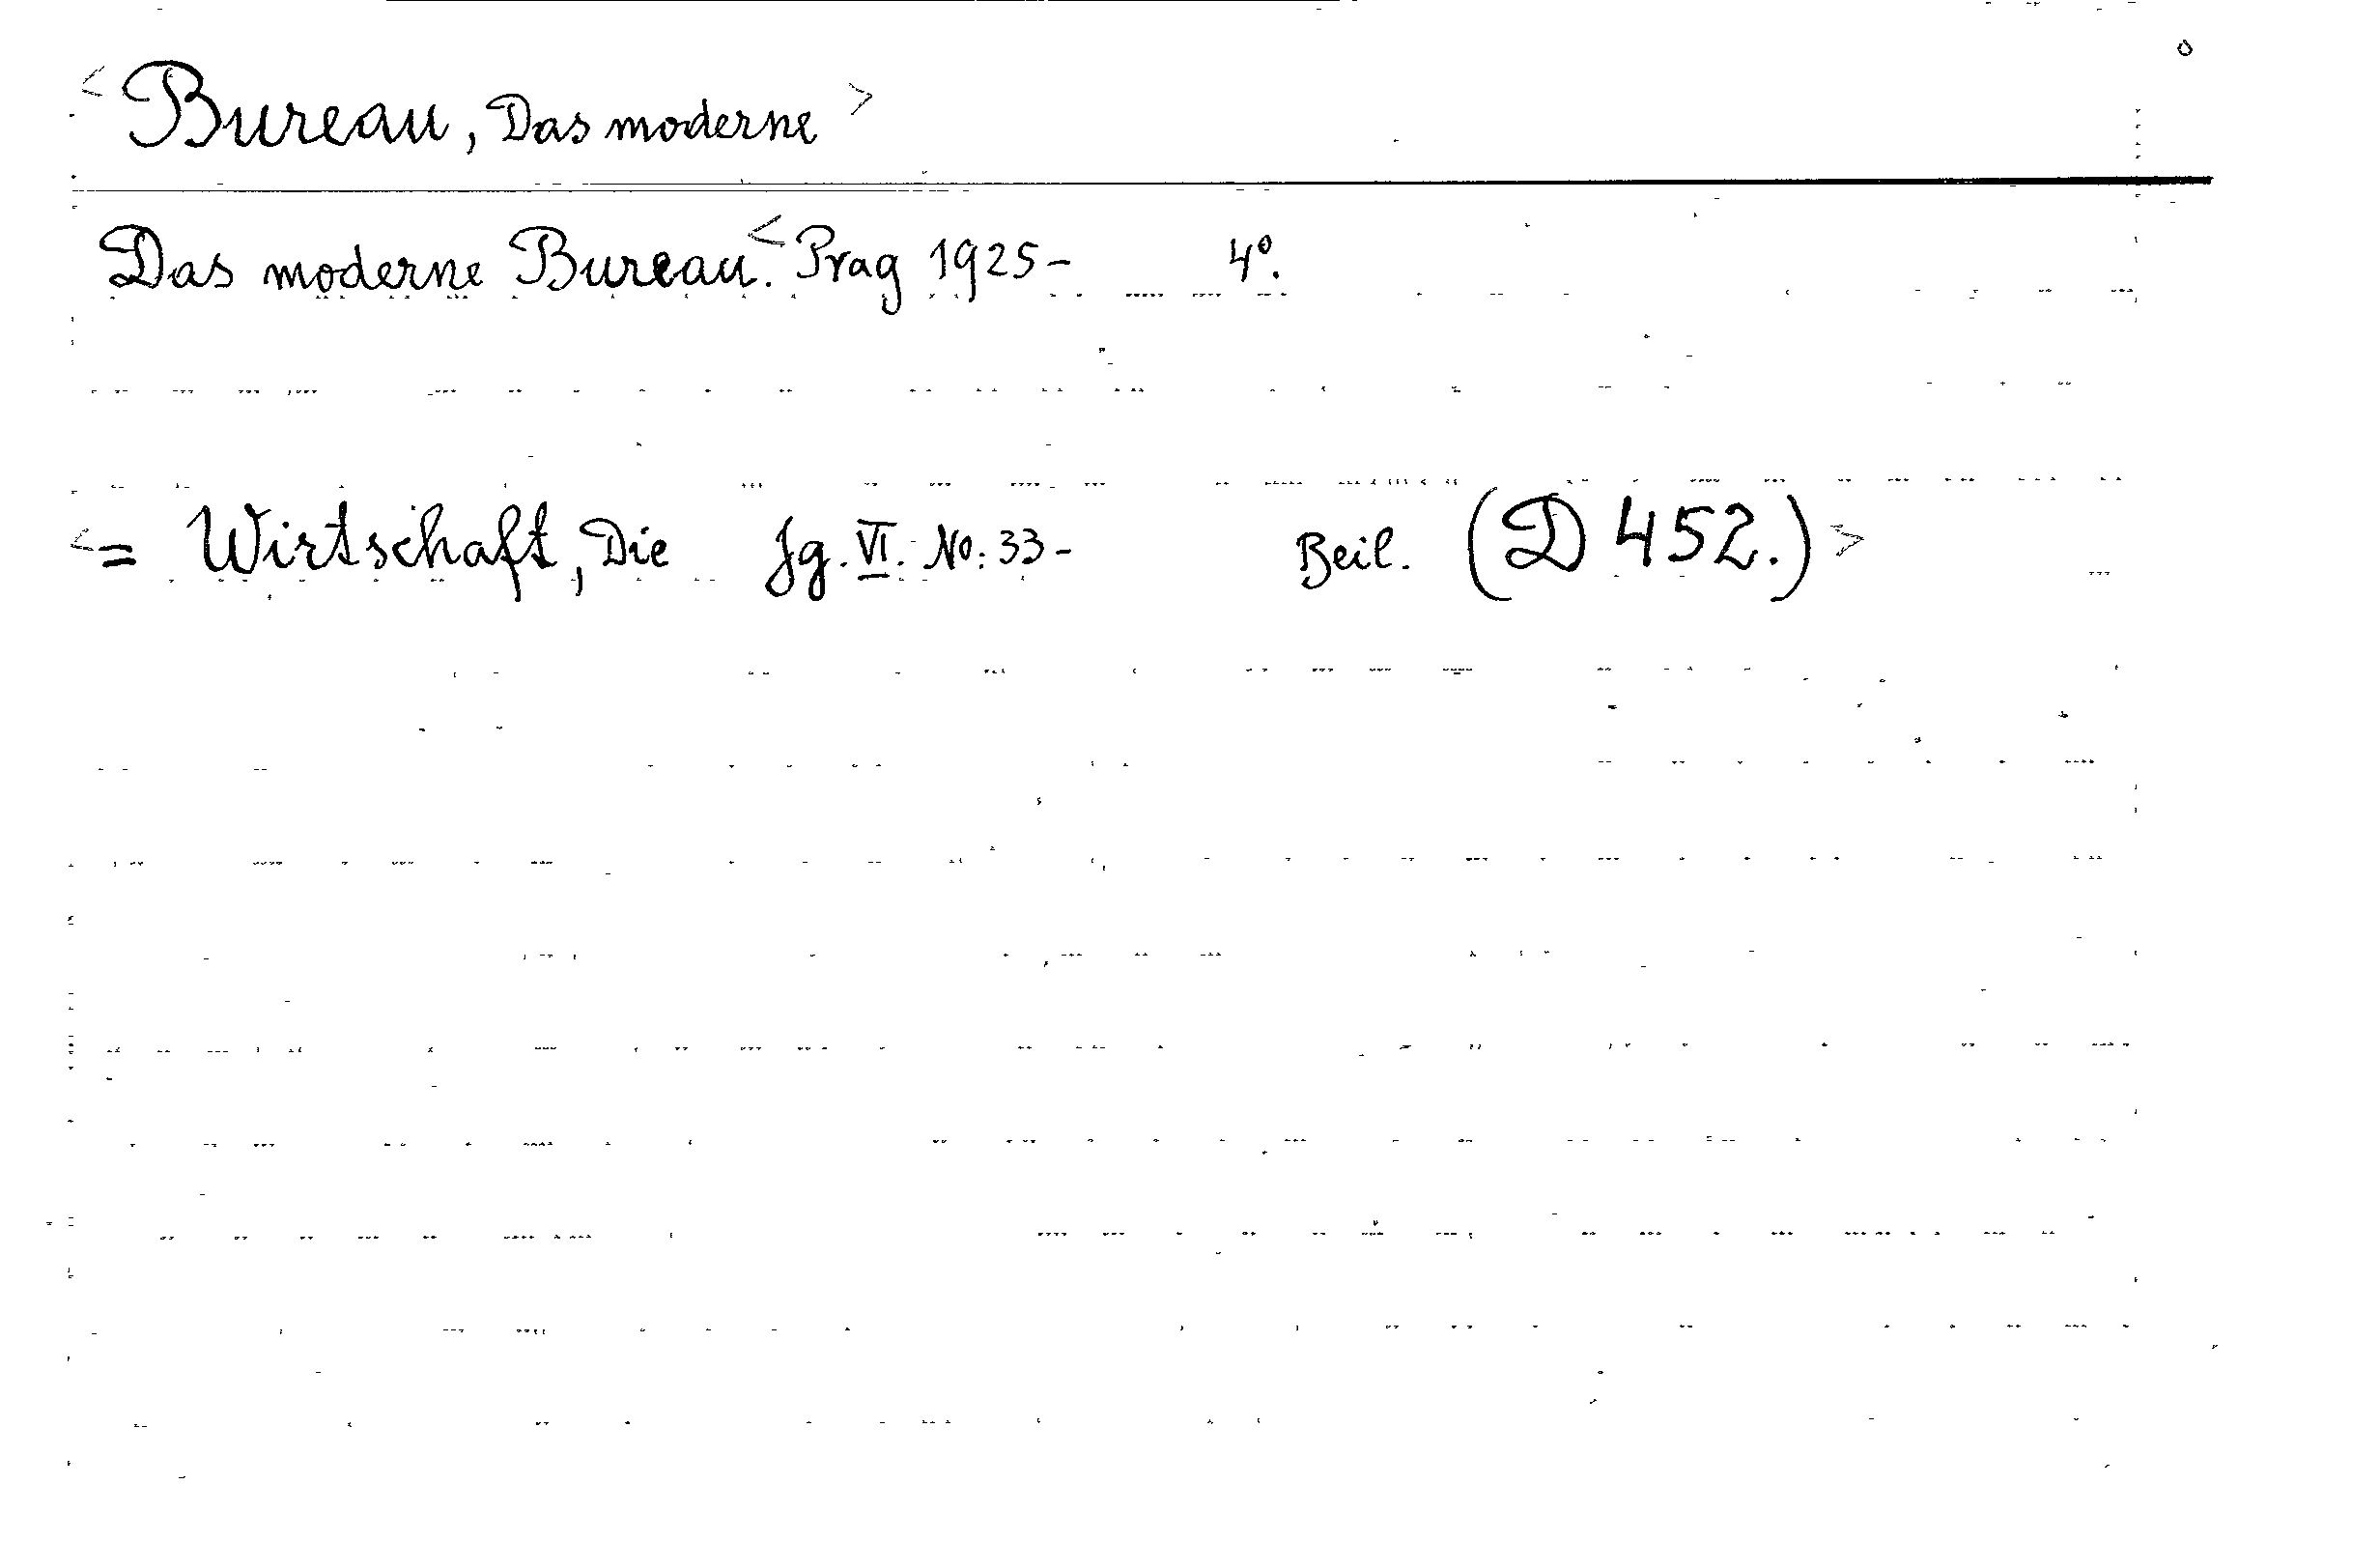 <Bureau, Das moderne>
Das moderne Bureau.< Prag 1925- 4°.
<= Wirtschaft, Die Jg. VI. No: 33- Beil. (D 452.)>